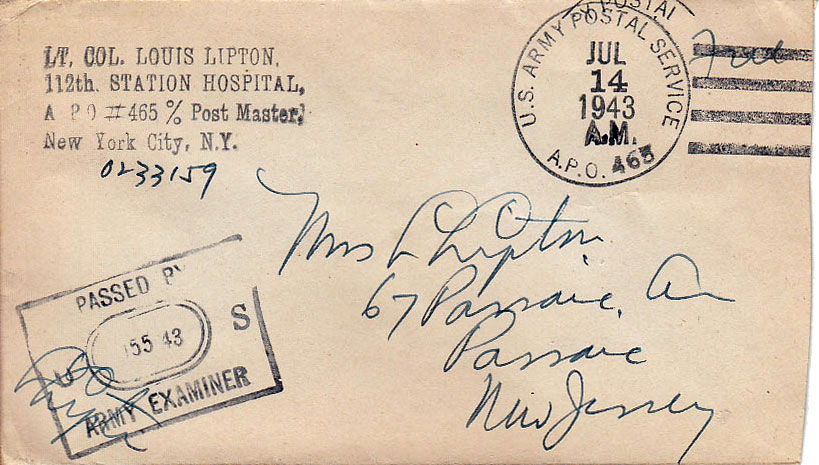 LT. COL. LOUIS LIPTON,
112th. STATION HOSPITAL,
A P O # 465 % Post Master,
New York City, N.Y.
0233159
U.S. ARMY POSTAL SERVICE
JUL
14
1943
A.M.
A.P.O. 465
Free
Mrs L Lipton
67 Passaic, Av
Passaic
New Jersey
PASSED BY
U S
155 43
ARMY EXAMINER